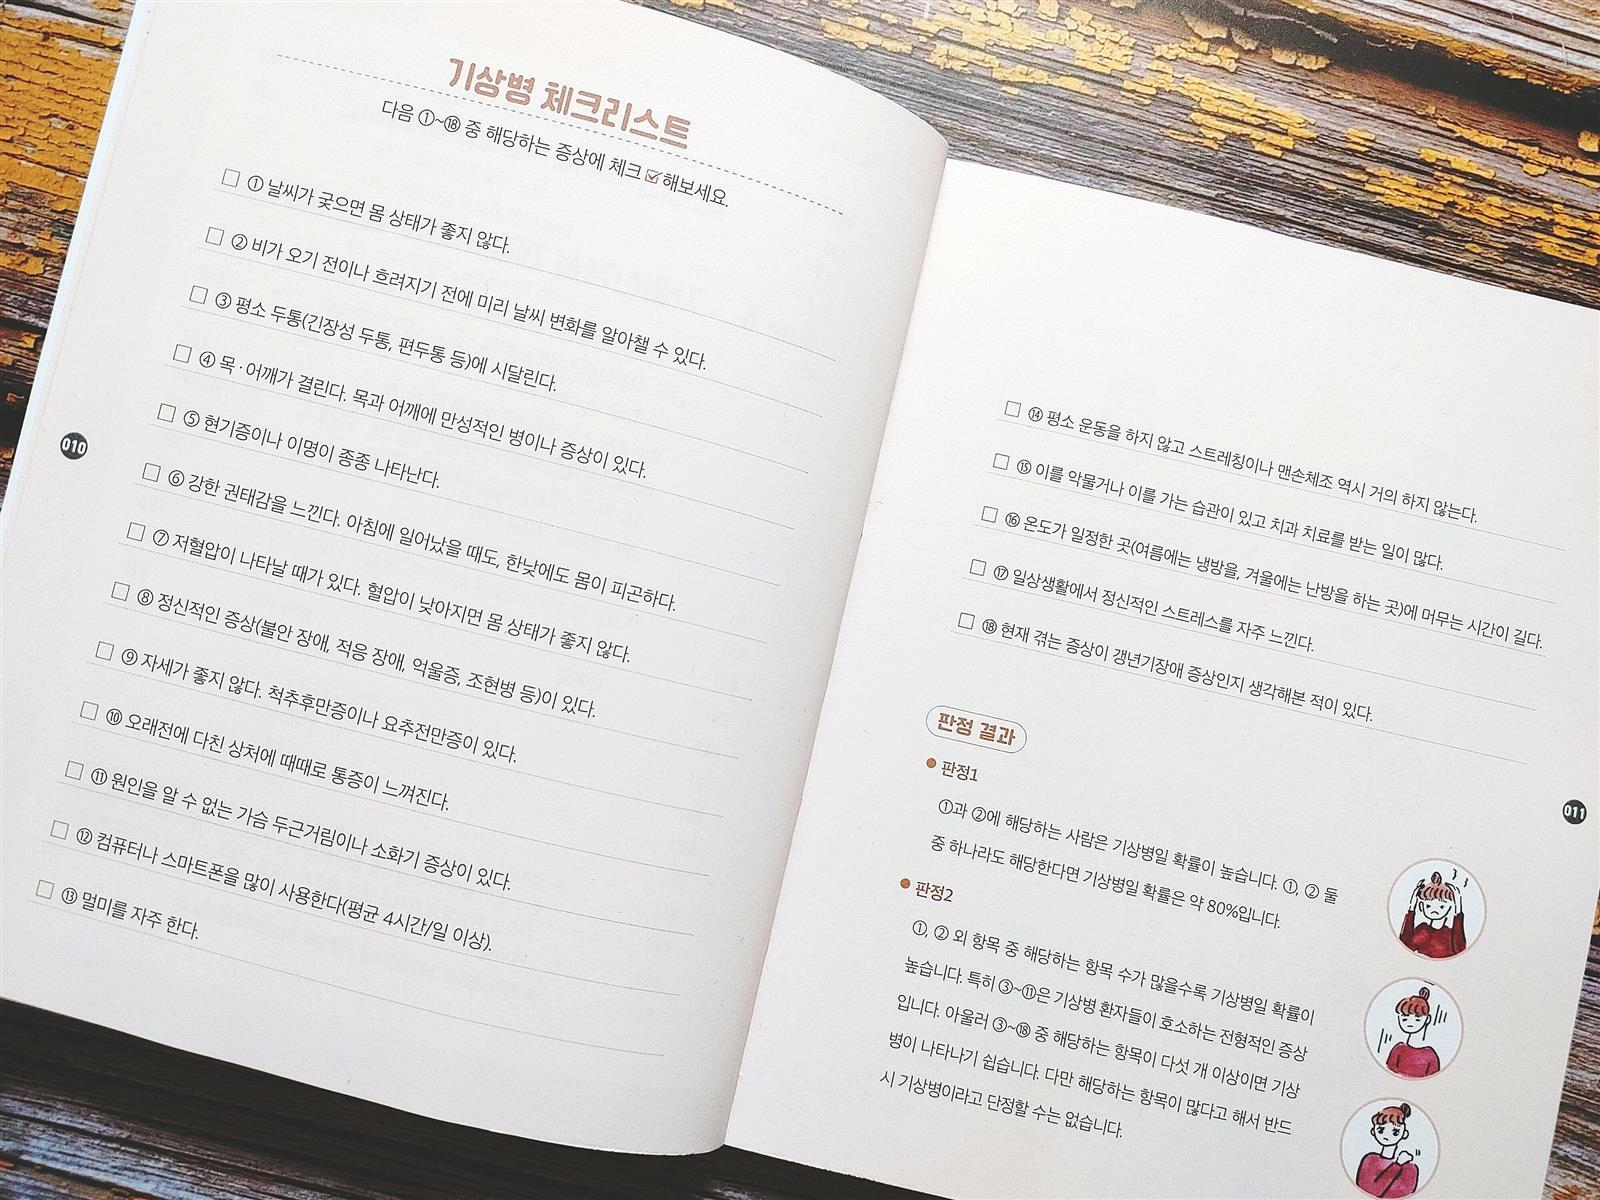 기상병 체크리스트
다음 ①~⑱ 중 해당하는 증상에 체크 ☑해보세요.
□ ① 날씨가 궂으면 몸 상태가 좋지 않다.
□ ② 비가 오기 전이나 흐려지기 전에 미리 날씨 변화를 알아챌 수 있다.
□ ③ 평소 두통(긴장성 두통, 편두통 등)에 시달린다.
□ ④ 목·어깨가 결린다. 목과 어깨에 만성적인 병이나 증상이 있다.
□ ⑤ 현기증이나 이명이 종종 나타난다.
□ ⑥ 강한 권태감을 느낀다. 아침에 일어났을 때도, 한낮에도 몸이 피곤하다.
□ ⑦ 저혈압이 나타날 때가 있다. 혈압이 낮아지면 몸 상태가 좋지 않다.
□ ⑧ 정신적인 증상(불안 장애, 적응 장애, 억울증, 조현병 등)이 있다.
□ ⑨ 자세가 좋지 않다. 척추후만증이나 요추전만증이 있다.
□ ⑩ 오래전에 다친 상처에 때때로 통증이 느껴진다.
□ ⑪ 원인을 알 수 없는 가슴 두근거림이나 소화기 증상이 있다.
□ ⑫ 컴퓨터나 스마트폰을 많이 사용한다(평균 4시간/일 이상).
□ ⑬ 멀미를 자주 한다.
010
□ ⑭ 평소 운동을 하지 않고 스트레칭이나 맨손체조 역시 거의 하지 않는다.
□ ⑮ 이를 악물거나 이를 가는 습관이 있고 치과 치료를 받는 일이 많다.
□ ⑯ 온도가 일정한 곳(여름에는 냉방을, 겨울에는 난방을 하는 곳)에 머무는 시간이 길다.
□ ⑰ 일상생활에서 정신적인 스트레스를 자주 느낀다.
□ ⑱ 현재 겪는 증상이 갱년기장애 증상인지 생각해본 적이 있다.
판정 결과
● 판정1
①과 ②에 해당하는 사람은 기상병일 확률이 높습니다. ①, ② 둘
중 하나라도 해당한다면 기상병일 확률은 약 80%입니다.
● 판정2
①, ② 외 항목 중 해당하는 항목 수가 많을수록 기상병일 확률이
높습니다. 특히 ③~⑪은 기상병 환자들이 호소하는 전형적인 증상
입니다. 아울러 ③~⑱ 중 해당하는 항목이 다섯 개 이상이면 기상
병이 나타나기 쉽습니다. 다만 해당하는 항목이 많다고 해서 반드
시 기상병이라고 단정할 수는 없습니다.
011